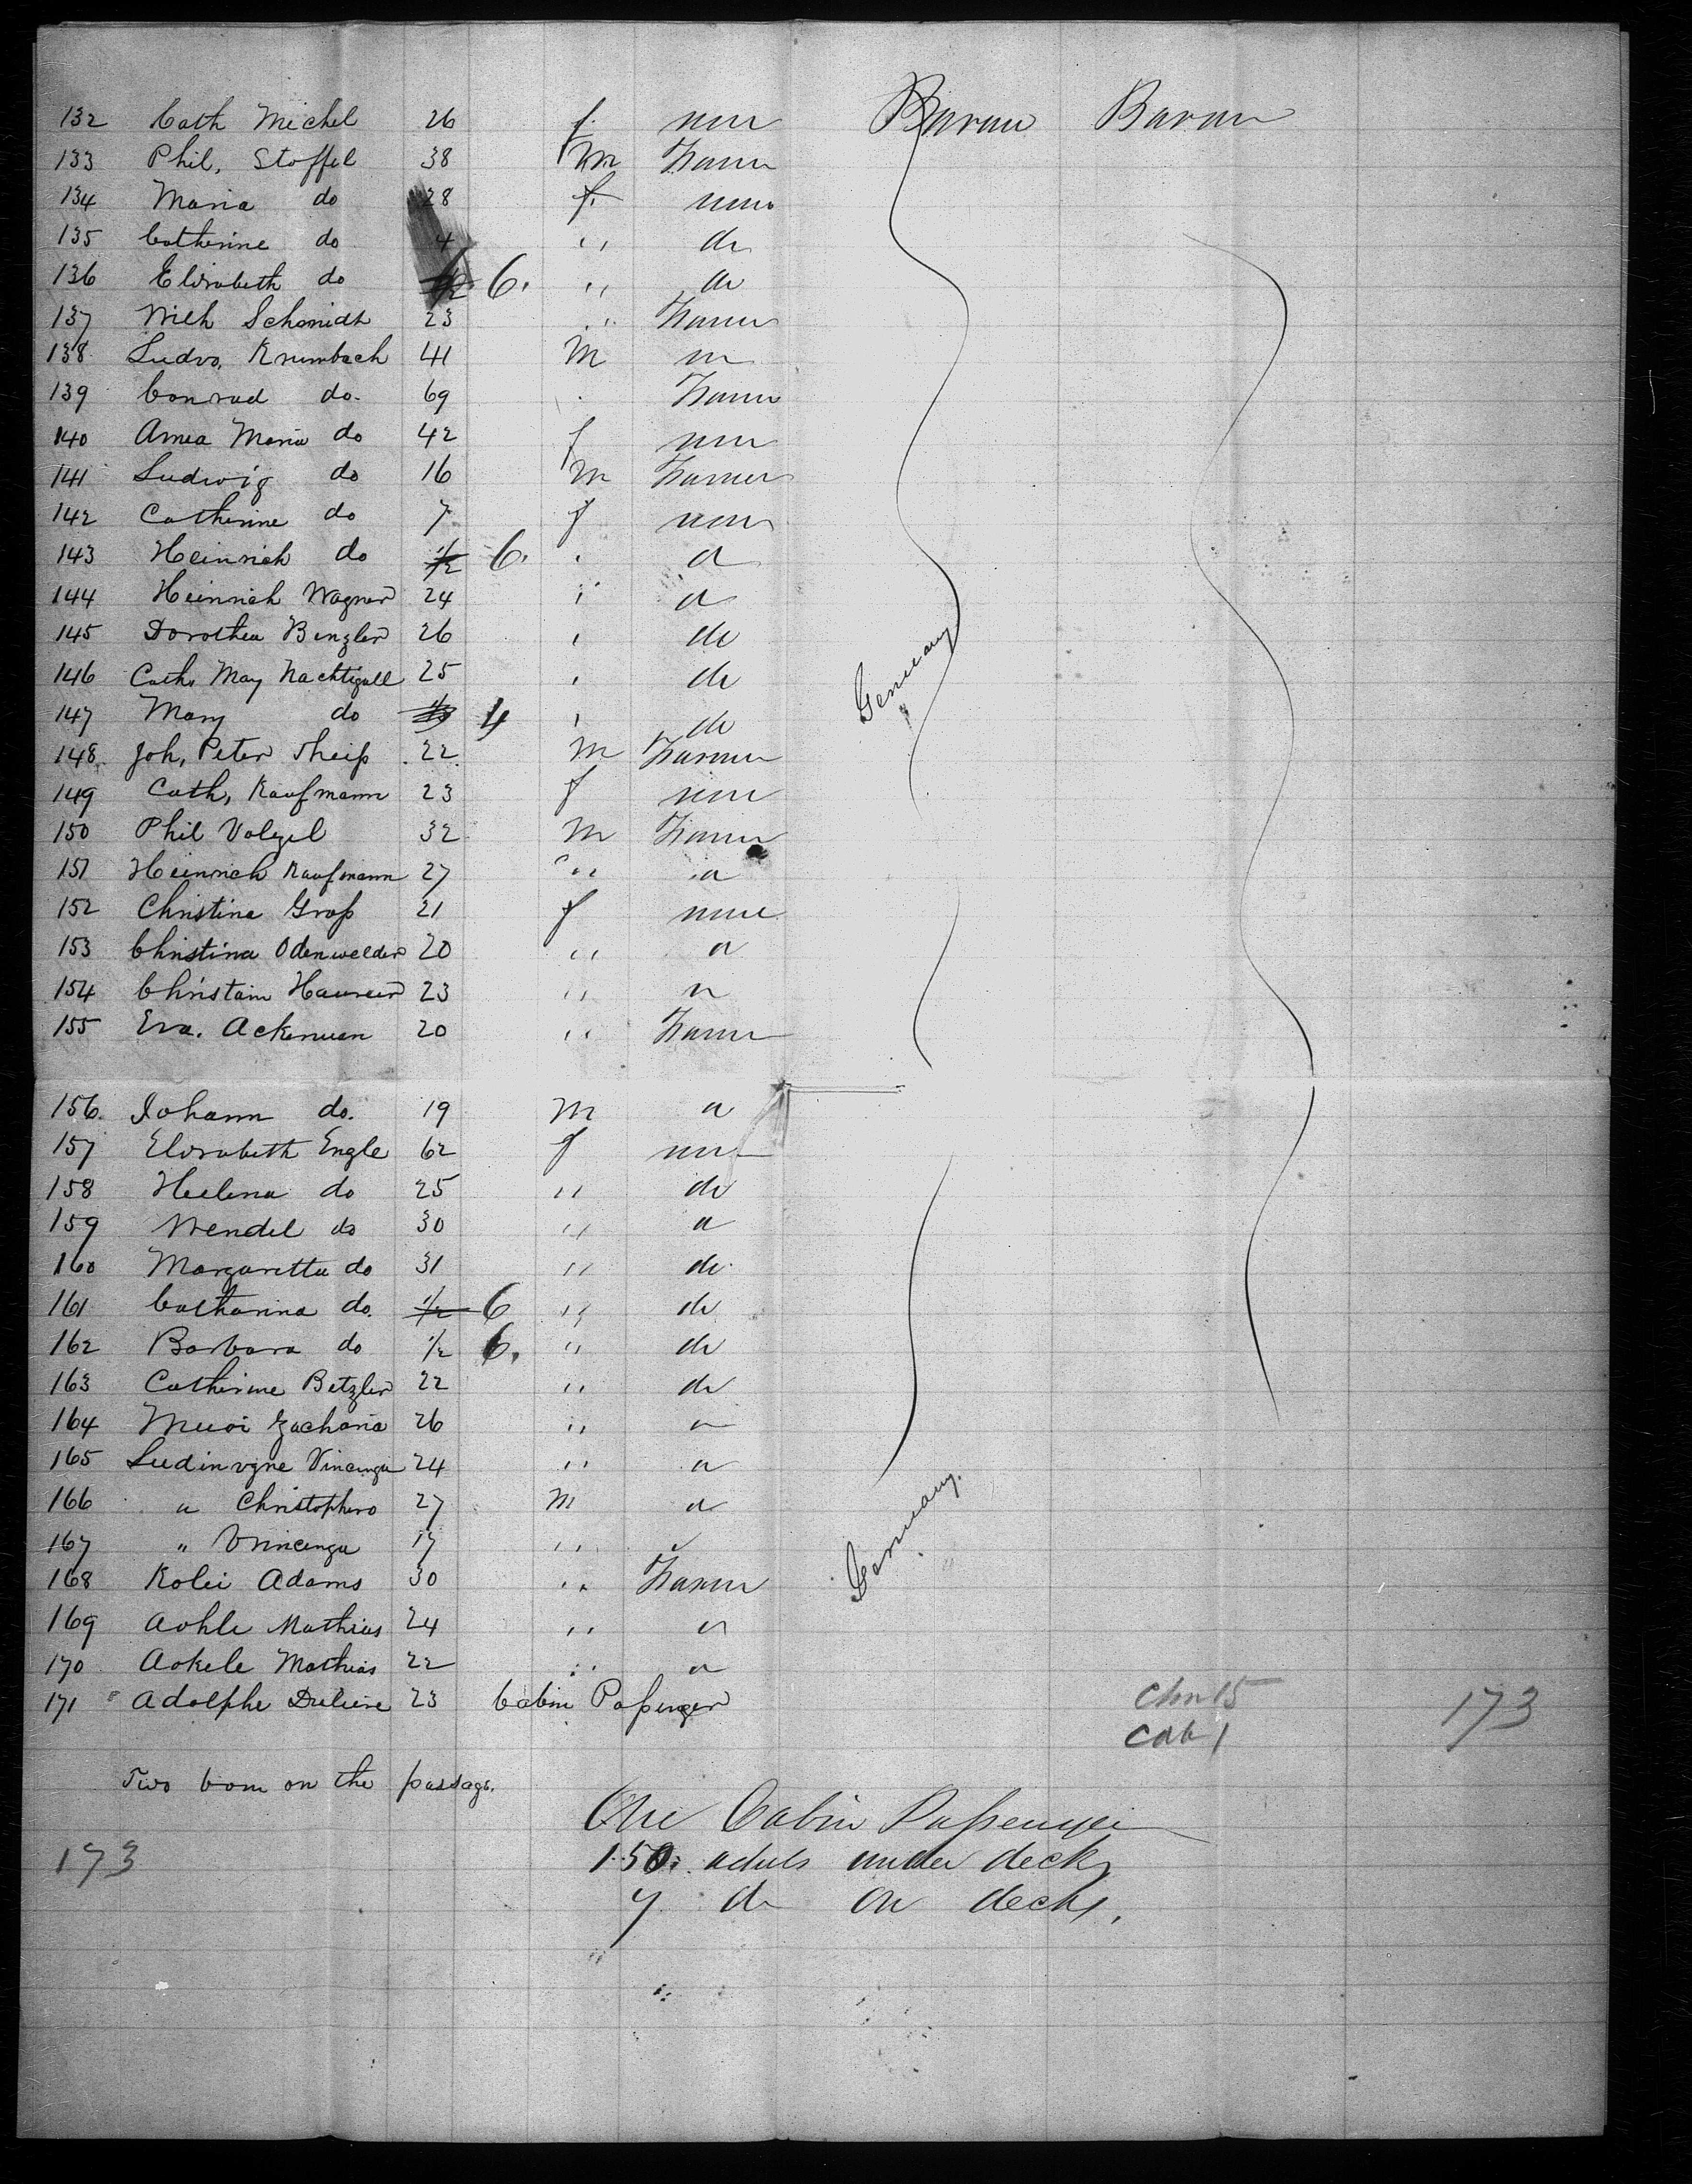 132 Cath Michel 26 f. none Baram Baram
133 Phil. Stoffel 38 m Farmer
134 Maria do 28 f. none
135 Catherine do 4 " do
136 Elisabeth do 1/2 6. " do
137 Wilh Schmidt 23 " Farmer
138 Ludw. Krumbach 41 M
139 Conrad do. 69 Farmer
140 Anna Maria do 42 f none
141 Ludwig do 16 m Farmer
142 Catherine do 7 f none
143 Heinrich do 1/2 6. " do
144 Heinrich Wagner 24 " do
145 Dorothea Benzler 26 " do
146 Cath. May Nachtigall 25 " do
Germany
147 Mary do 4 " do
148. Joh, Peter Theiß 22 m Farmer
149 Cath, Kaufmann 23 f none
150 Phil Volzel 32 m Farmer
151 Heinrich Kaufmann 27 " do
152 Christina Groß 21 f none
153 Christina Odenwelder 20 " do
154 Christain 23 "
155 Eva. Ackerman 20 " Farmer
156. Johann do. 19 M do
157 Elisabeth Engle 62 f none
158 Helena do 25 " do
159 Wendel do 30 " do
160 Margaretta do 31 " do
161 Catharina do. 1/2 6 " do
162 Barbara do 1/2 6. " do
163 Catherine Betzler 22 " do
164 Zacharia 26 " do
165 Vincenza 24 " do
166 " Christophero 27 m do
167 " Vincenza 17 "
168 Kolei Adams 30 " Farmer
Germany.
169 Aohle Mathias 24 " do
170 Aokele Mathias 22 " do
171 Adolphe 23 Cabin Paßenger Chn 15 173
Cab 1
Two born on the passage.
One Cabin Paßenger
173 150. aduls under deck
7 do on decks.